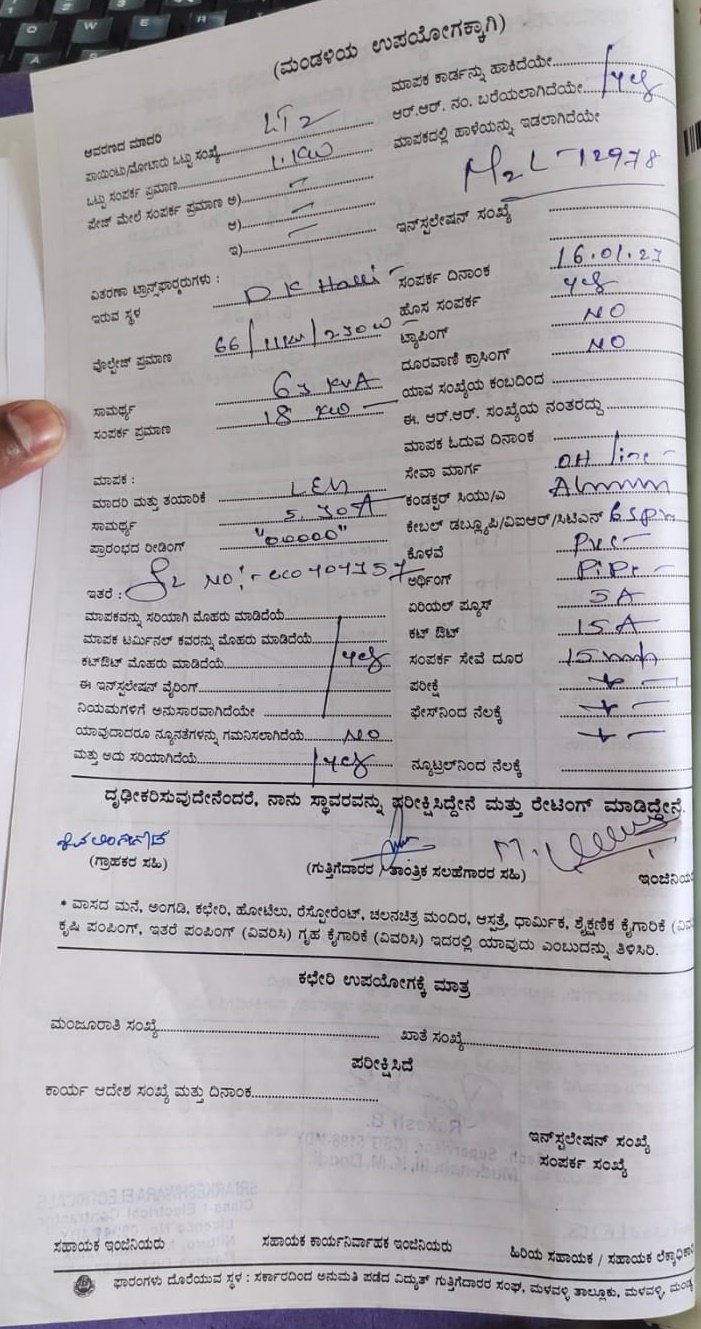 (ಮಂಡಳಿಯ ಉಪಯೋಗಕ್ಕಾಗಿ)
ಆವರಣದ ಮಾದರಿ LT2
ಪಾಯಿಂಟು/ಮೋಟಾರು ಒಟ್ಟು ಸಂಖ್ಯೆ
ಒಟ್ಟು ಸಂಪರ್ಕ ಪ್ರಮಾಣ 1.KW
ಪೇಜ್ ಮೇಲೆ ಸಂಪರ್ಕ ಪ್ರಮಾಣ ಅ)
ಆ)
ಇ)
ವಿತರಣಾ ಟ್ರಾನ್ಸ್‌ಫಾರ್ಮರುಗಳು :
ಇರುವ ಸ್ಥಳ D K Halli
ವೊಲ್ಟೇಜ್ ಪ್ರಮಾಣ 66/11KV/230W
ಸಾಮರ್ಥ್ಯ 63 KVA
ಸಂಪರ್ಕ ಪ್ರಮಾಣ 18 KW
ಮಾಪಕ :
ಮಾದರಿ ಮತ್ತು ತಯಾರಿಕೆ
ಸಾಮರ್ಥ್ಯ 5.30A
ಪ್ರಾರಂಭದ ರೀಡಿಂಗ್ "00000"
ಇತರೆ : Sl NO:-
ಮಾಪಕವನ್ನು ಸರಿಯಾಗಿ ಮೊಹರು ಮಾಡಿದೆಯೆ
ಮಾಪಕ ಟರ್ಮಿನಲ್ ಕವರನ್ನು ಮೊಹರು ಮಾಡಿದೆಯೆ
ಕಟ್‌ಔಟ್ ಮೊಹರು ಮಾಡಿದೆಯೆ yes
ಈ ಇನ್‌ಸ್ಟಲೇಷನ್ ವೈರಿಂಗ್
ನಿಯಮಗಳಿಗೆ ಅನುಸಾರವಾಗಿದೆಯೇ
ಯಾವುದಾದರೂ ನ್ಯೂನತೆಗಳನ್ನು ಗಮನಿಸಲಾಗಿದೆಯೆ NO
ಮತ್ತು ಅದು ಸರಿಯಾಗಿದೆಯೆ yes
ಮಾಪಕ ಕಾರ್ಡನ್ನು ಹಾಕಿದೆಯೇ
ಆರ್.ಆರ್. ನಂ. ಬರೆಯಲಾಗಿದೆಯೇ yes
ಮಾಪಕದಲ್ಲಿ ಹಾಳೆಯನ್ನು ಇಡಲಾಗಿದೆಯೇ
M2L-12978
ಇನ್‌ಸ್ಟಲೇಷನ್ ಸಂಖ್ಯೆ
ಸಂಪರ್ಕ ದಿನಾಂಕ 16.01.23
ಹೊಸ ಸಂಪರ್ಕ yes
ಟ್ಯಾಪಿಂಗ್ NO
ದೂರವಾಣಿ ಕ್ರಾಸಿಂಗ್ NO
ಯಾವ ಸಂಖ್ಯೆಯ ಕಂಬದಿಂದ
ಈ. ಆರ್.ಆರ್. ಸಂಖ್ಯೆಯ ನಂತರದ್ದು
ಮಾಪಕ ಓದುವ ದಿನಾಂಕ
ಸೇವಾ ಮಾರ್ಗ OH line
ಕಂಡಕ್ಟರ್ ಸಿಯು/ಎ
ಕೇಬಲ್ ಡಬ್ಲ್ಯೂಪಿ/ವಿಐಆರ್/ಸಿಟಿಎನ್
ಕೊಳವೆ PVC
ಅರ್ಥಿಂಗ್ PiPe
ಏರಿಯಲ್ ಪ್ಯೂಸ್ 5A
ಕಟ್ ಔಟ್ 15A
ಸಂಪರ್ಕ ಸೇವೆ ದೂರ
ಪರೀಕ್ಷೆ
ಫೇಸ್‌ನಿಂದ ನೆಲಕ್ಕೆ
ನ್ಯೂಟ್ರಲ್‌ನಿಂದ ನೆಲಕ್ಕೆ
ದೃಢೀಕರಿಸುವುದೇನೆಂದರೆ, ನಾನು ಸ್ಥಾವರವನ್ನು ಪರೀಕ್ಷಿಸಿದ್ದೇನೆ ಮತ್ತು ರೇಟಿಂಗ್ ಮಾಡಿದ್ದೇನೆ.
(ಗ್ರಾಹಕರ ಸಹಿ) (ಗುತ್ತಿಗೆದಾರರ / ತಾಂತ್ರಿಕ ಸಲಹೆಗಾರರ ಸಹಿ) ಇಂಜಿನಿಯ
* ವಾಸದ ಮನೆ, ಅಂಗಡಿ, ಕಛೇರಿ, ಹೋಟೆಲು, ರೆಸ್ಟೋರೆಂಟ್, ಚಲನಚಿತ್ರ ಮಂದಿರ, ಆಸ್ಪತ್ರೆ, ಧಾರ್ಮಿಕ, ಶೈಕ್ಷಣಿಕ ಕೈಗಾರಿಕೆ (ವಿವ
ಕೃಷಿ ಪಂಪಿಂಗ್, ಇತರೆ ಪಂಪಿಂಗ್ (ವಿವರಿಸಿ) ಗೃಹ ಕೈಗಾರಿಕೆ (ವಿವರಿಸಿ) ಇದರಲ್ಲಿ ಯಾವುದು ಎಂಬುದನ್ನು ತಿಳಿಸಿರಿ.
ಕಛೇರಿ ಉಪಯೋಗಕ್ಕೆ ಮಾತ್ರ
ಮಂಜೂರಾತಿ ಸಂಖ್ಯೆ ಖಾತೆ ಸಂಖ್ಯೆ
ಪರೀಕ್ಷಿಸಿದೆ
ಕಾರ್ಯ ಆದೇಶ ಸಂಖ್ಯೆ ಮತ್ತು ದಿನಾಂಕ
ಇನ್‌ಸ್ಟಲೇಷನ್ ಸಂಖ್ಯೆ
ಸಂಪರ್ಕ ಸಂಖ್ಯೆ
ಸಹಾಯಕ ಇಂಜಿನಿಯರು ಸಹಾಯಕ ಕಾರ್ಯನಿರ್ವಾಹಕ ಇಂಜಿನಿಯರು ಹಿರಿಯ ಸಹಾಯಕ / ಸಹಾಯಕ ಲೆಕ್ಕಾಧಿಕಾ
ಫಾರಂಗಳು ದೊರೆಯುವ ಸ್ಥಳ : ಸರ್ಕಾರದಿಂದ ಅನುಮತಿ ಪಡೆದ ವಿದ್ಯುತ್ ಗುತ್ತಿಗೆದಾರರ ಸಂಘ, ಮಳವಳ್ಳಿ ತಾಲ್ಲೂಕು, ಮಳವಳ್ಳಿ, ಮಂಡ್ಯ